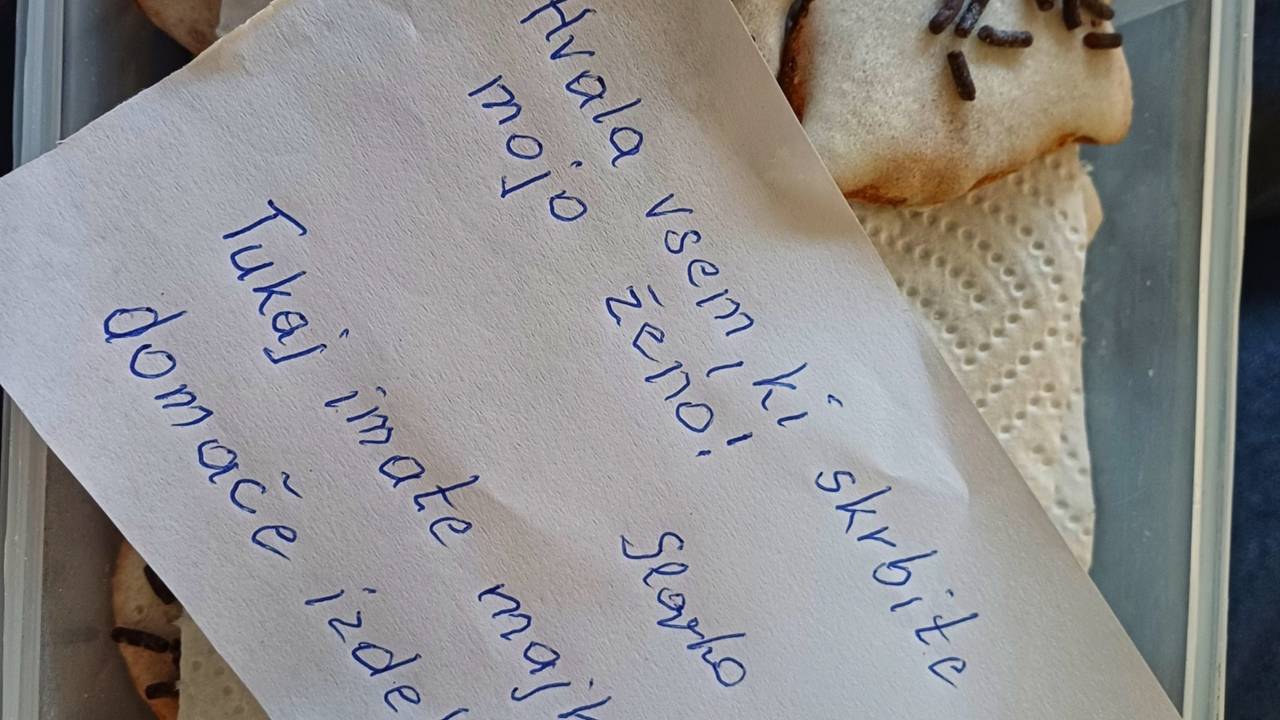 Hvala vsem, ki skrbite
mojo ženo!
Slavko
Tukaj imate majh
domače izdel